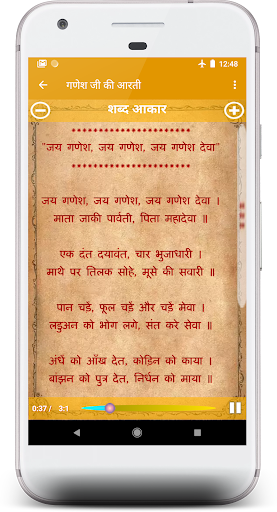 12:48
गणेश जी की आरती
शब्द आकार
"जय गणेश, जय गणेश, जय गणेश देवा"
जय गणेश, जय गणेश, जय गणेश देवा ।
माता जाकी पार्वती, पिता महादेवा ॥
एक दंत दयावंत, चार भुजाधारी ।
माथे पर तिलक सोहे, मूसे की सवारी ॥
पान चड़ें, फूल चड़ें और चड़ें मेवा ।
लडुअन को भोग लगे, संत करे सेवा ॥
अंधें को आँख देत, कोडिन को काया ।
बांझन को पुत्र देत, निर्धन को माया ॥
0:37 / 3:1